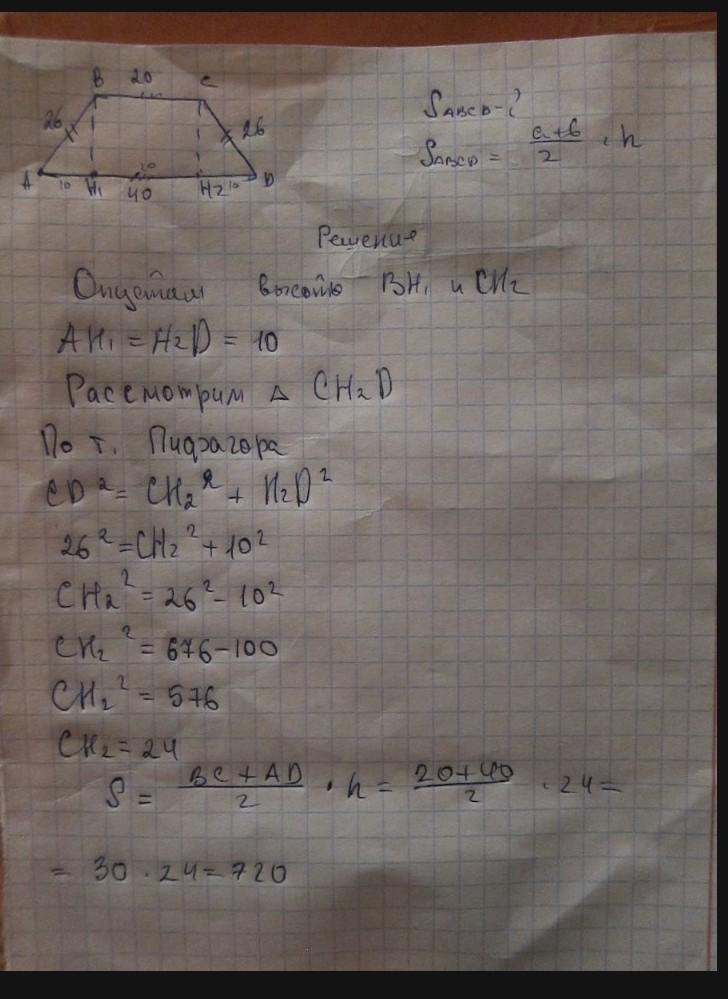 B 20 C
26 26
A 10 H1 20 40 H2 10 D
SABCD-?
SABCD = a+b/2 · h
Решение
Опустам высоты BH1 и CH2
AH1 = H2D = 10
Рассмотрим Δ CH2D
По т. Пифагора
CD² = CH2² + H2D²
26² = CH2² + 10²
CH2² = 26² - 10²
CH2² = 676-100
CH2² = 576
CH2 = 24
S = BC + AD/2 · h = 20+40/2 · 24 =
= 30 · 24 = 720